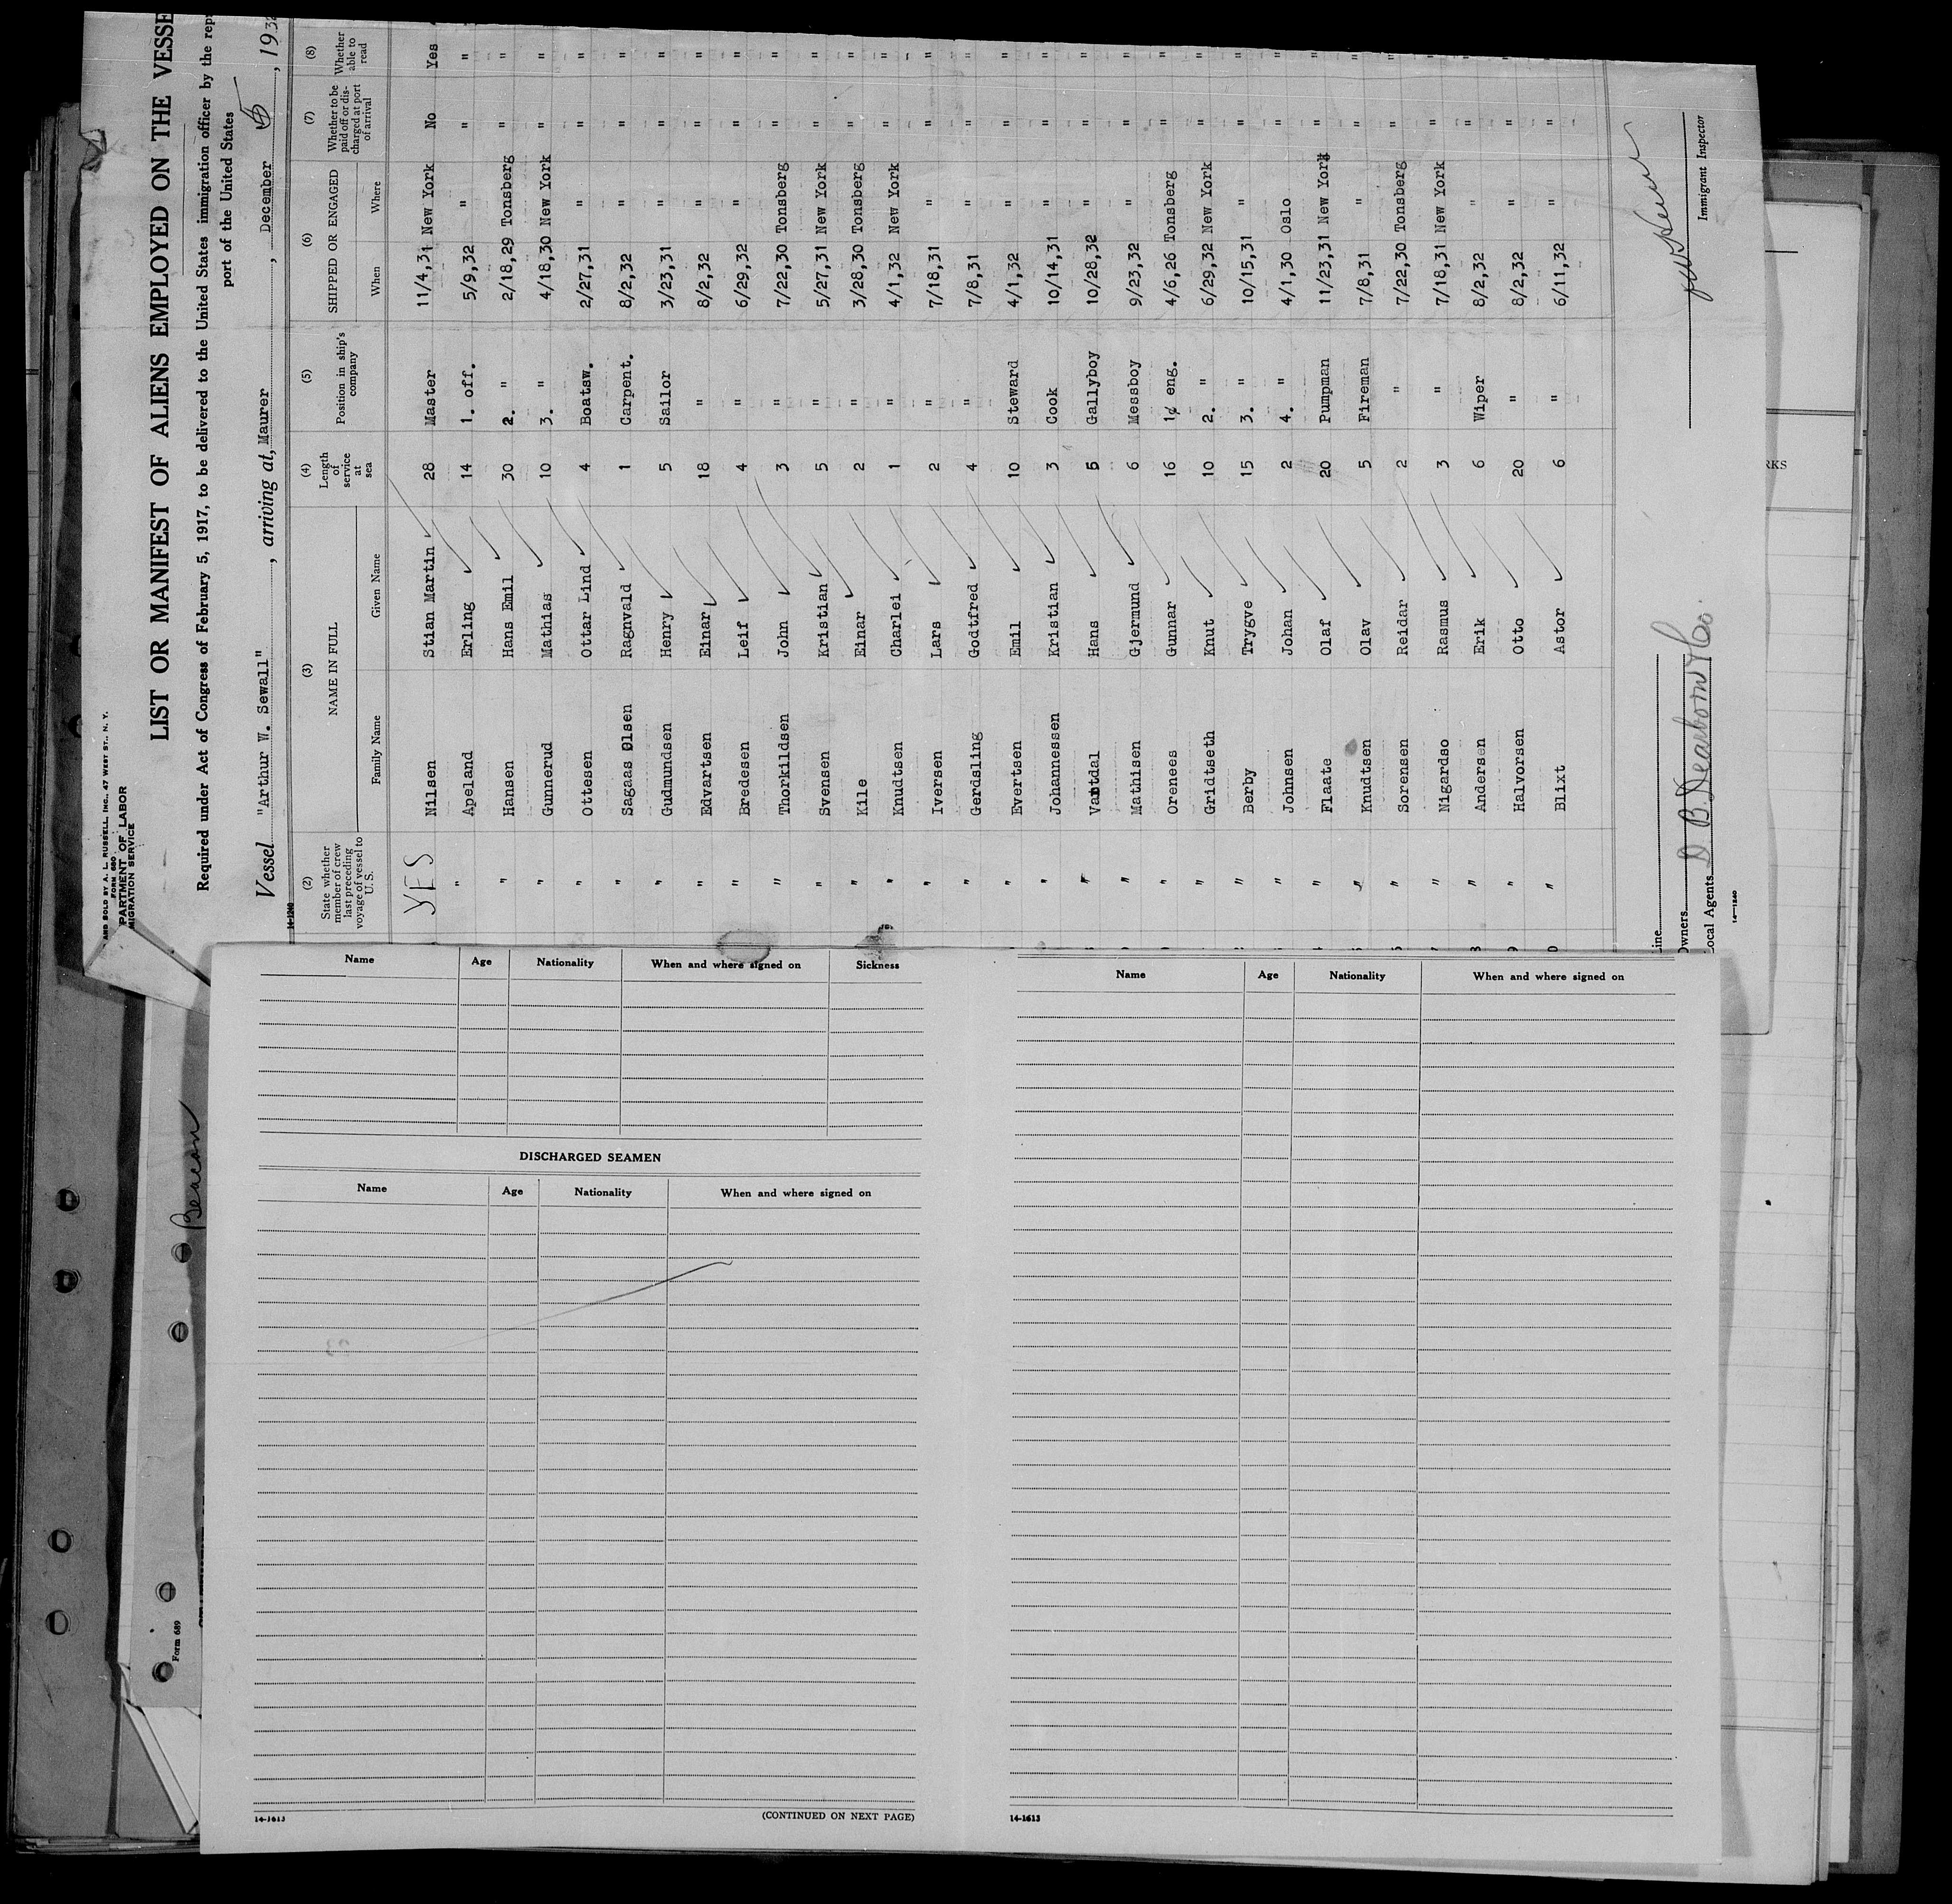 AND SOLD BY A. L. RUSSELL, INC., 47 WEST ST., N. Y.
FORM 680
PARTMENT OF LABOR
MIGRATION SERVICE
LIST OR MANIFEST OF ALIENS EMPLOYED ON THE VESSE
Required under Act of Congress of February 5, 1917, to be delivered to the United States immigration officer by the rep
port of the United States
Vessel "Arthur W. Sewall", arriving at, Maurer, December 1932
14-1240
(2) (3) (4) (5) (6) (7) (8)
State whether member of crew last preceding voyage of vessel to U. S. NAME IN FULL Length of service at sea Position in ship's company SHIPPED OR ENGAGED Whether to be paid off or discharged at port of arrival Whether able to read
Family Name Given Name When Where
YES Nilsen Stian Martin 28 Master 11/4,31 New York No Yes
" Apeland Erling 14 1. off. 5/9,32 " " "
" Hansen Hans Emil 30 2. " 2/18,29 Tonsberg " "
" Gunnerud Mathias 10 3. " 4/18,30 New York " "
" Ottesen Ottar Lind 4 Boatsw. 2/27,31 " " "
" Sagaas Olsen Ragnvald 1 Carpent. 8/2,32 " " "
" Gudmundsen Henry 5 Sailor 3/23,31 " " "
" Edvartsen Einar 18 " 8/2,32 " " "
" Bredesen Leif 4 " 6/29,32 " " "
" Thorkildsen John 3 " 7/22,30 Tonsberg " "
" Svensen Kristian 5 " 5/27,31 New York " "
" Kile Einar 2 " 3/28,30 Tonsberg " "
" Knudtsen Charlei 1 " 4/1,32 New York " "
" Iversen Lars 2 " 7/18,31 " " "
" Gerdsling Godtfred 4 " 7/8,31 " " "
" Evertsen Emil 10 Steward 4/1,32 " " "
" Johannessen Kristian 3 Cook 10/14,31 " " "
" Hans 5 Gallyboy 10/28,32 " " "
" Mathisen Gjermund 6 Messboy 9/23,32 " " "
" Orenees Gunnar 16 1 eng. 4/6,26 Tonsberg " "
" Gridtseth Knut 10 2. " 6/29,32 New York " "
" Berby Trygve 15 3. " 10/15,31 " " "
" Johnsen Johan 2 4. " 4/1,30 Oslo " "
" Flaate Olaf 20 Pumpman 11/23,31 New York " "
" Knudtsen Olav 5 Fireman 7/8,31 " " "
" Sorensen Reidar 2 " 7/22,30 Tonsberg " "
" Nigardso Rasmus 3 " 7/18,31 New York " "
" Andersen Erik 6 Wiper 8/2,32 " " "
" Halvorsen Otto 20 " 8/2,32 " " "
" Blixt Astor 6 " 6/11,32 " " "
Immigrant Inspector
ine
Owners
Local Agents D B Dearborn & Co.
14-1240
RKS
Beacon
Form 689
Name Age Nationality When and where signed on Sickness
DISCHARGED SEAMEN
Name Age Nationality When and where signed on
14-1613
(CONTINUED ON NEXT PAGE)
Name Age Nationality When and where signed on
14-1613